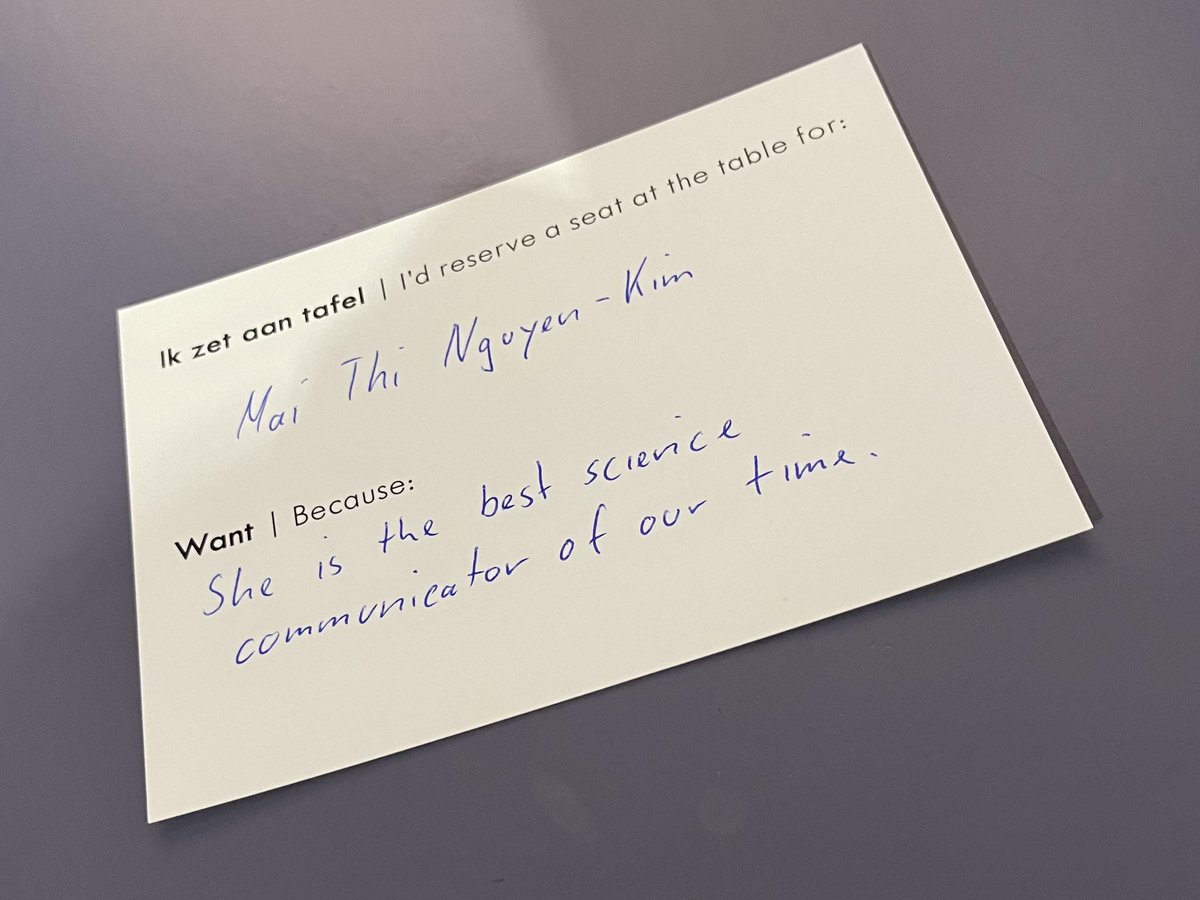 Ik zet aan tafel | I'd reserve a seat at the table for:
Mai Thi Nguyen-Kim
Want | Because:
She is the best science
communicator of our time.